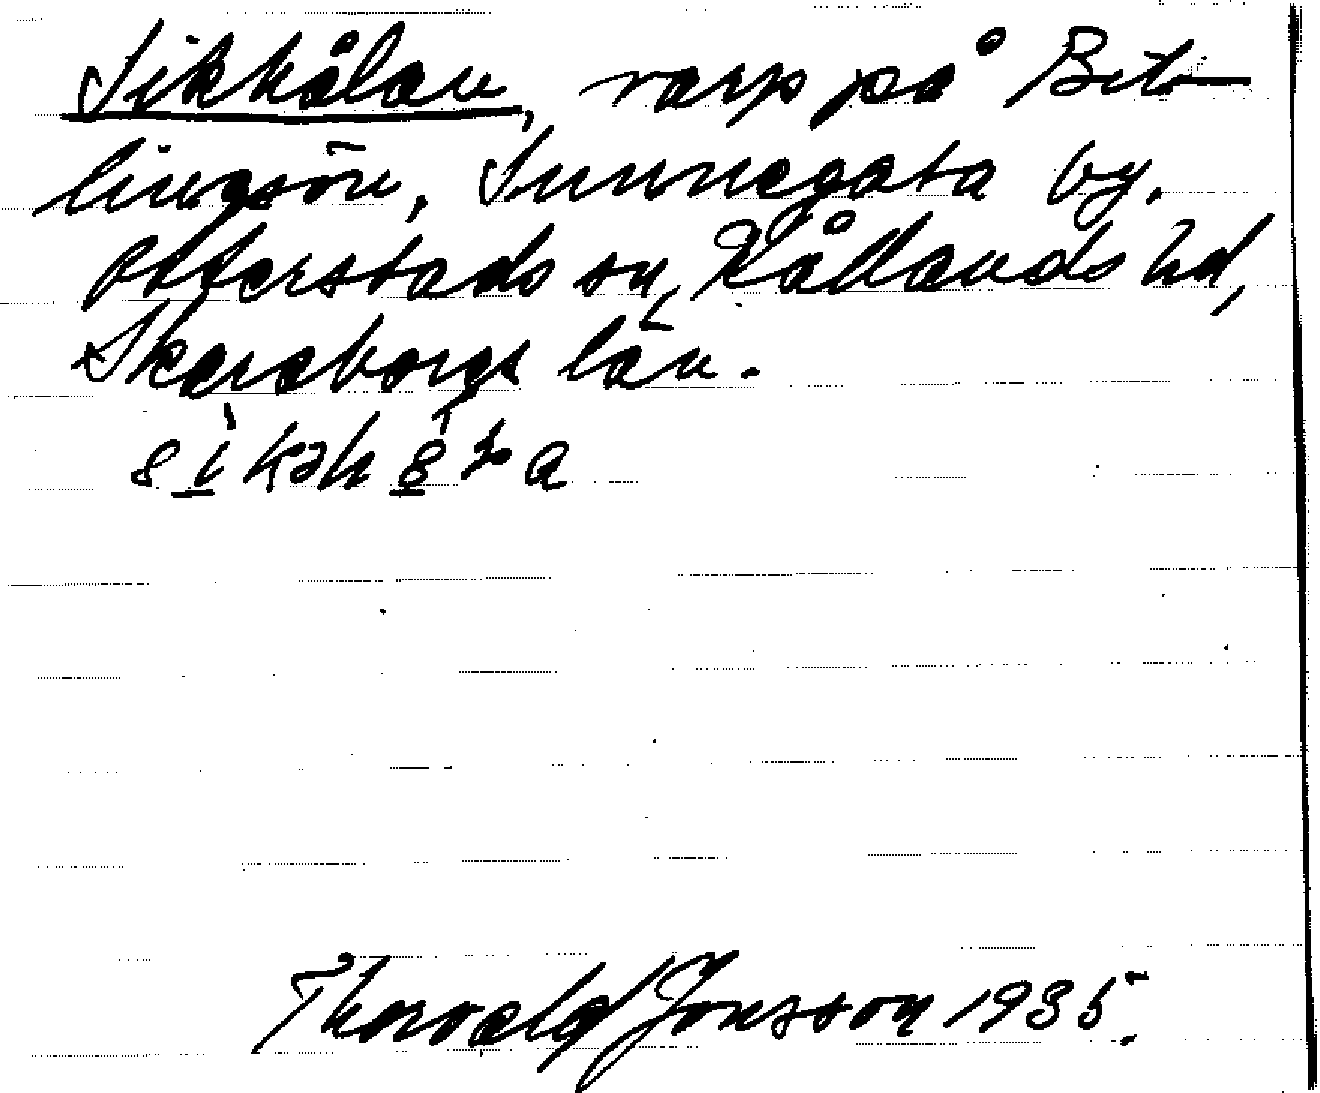 Sikhålan, varp på Bit-
lingsön, Sunnegata by.
Otterstads sn, Kållands hd,
Skaraborgs län.
Thorvald Jonsson 1935.